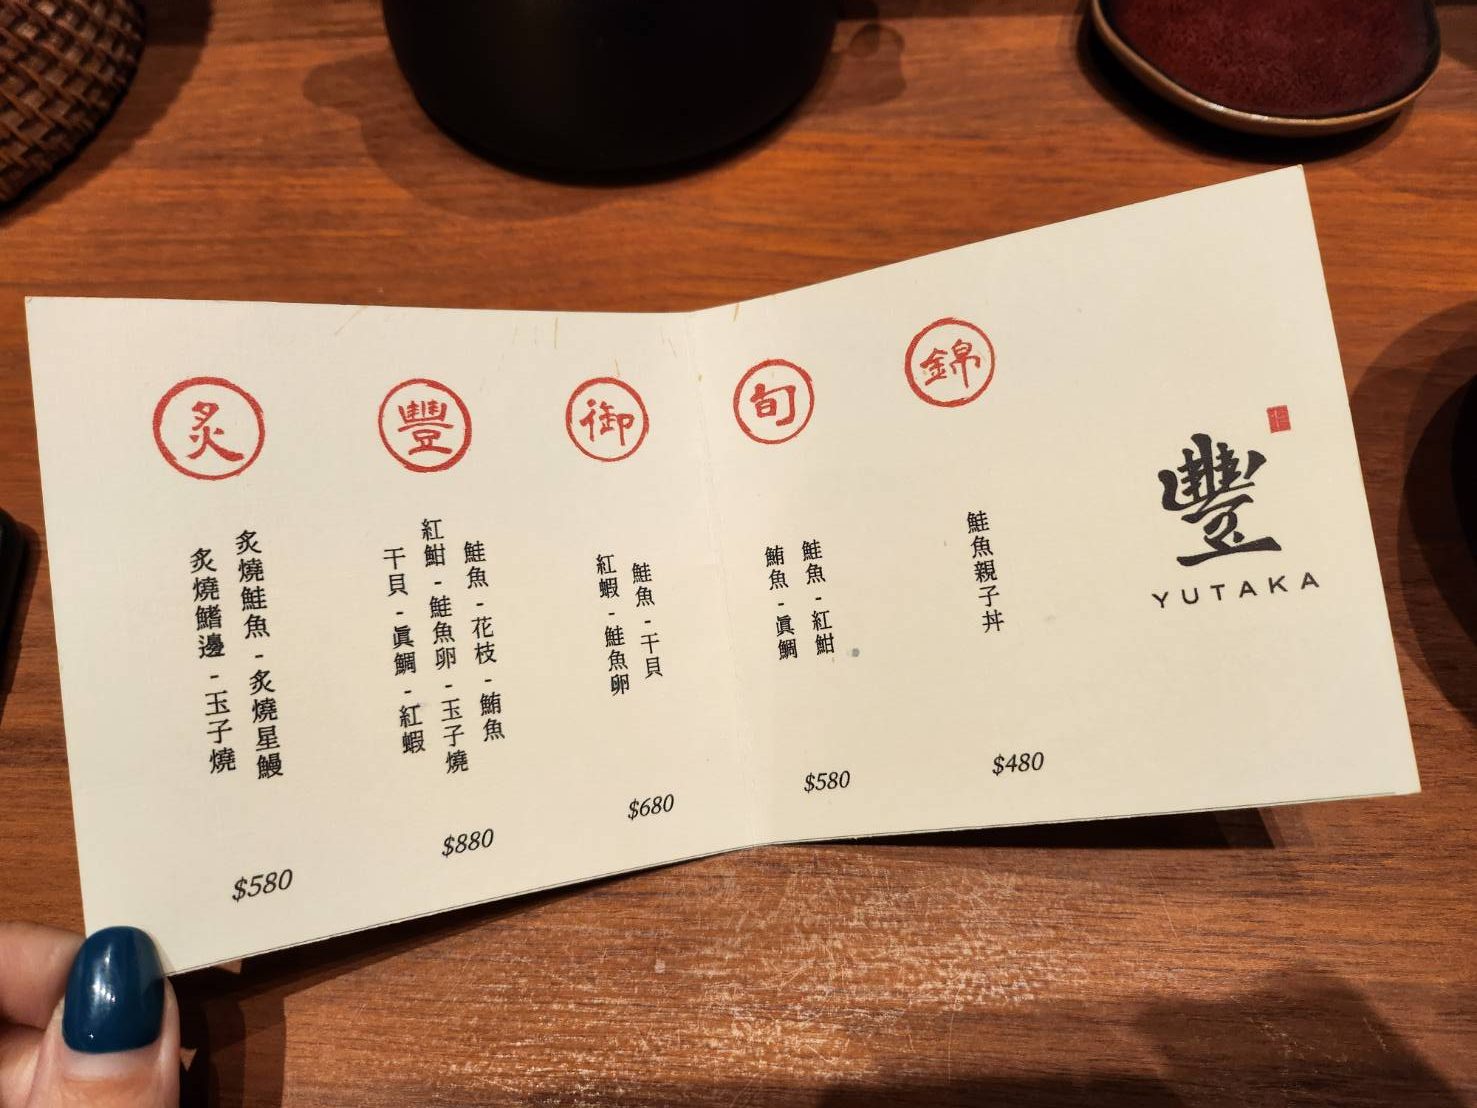 豐
YUTAKA
錦
鮭魚親子丼
$480
旬
鮭魚-紅魽
鮪魚-眞鯛
$580
御
鮭魚-干貝
紅蝦-鮭魚卵
$680
豐
鮭魚-花枝-鮪魚
紅魽-鮭魚卵-玉子燒
干貝-眞鯛-紅蝦
$880
炙
炙燒鮭魚-炙燒星鰻
炙燒鰭邊-玉子燒
$580